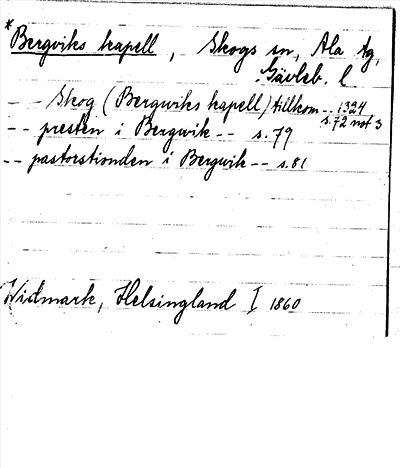 *Bergviks kapell, Skogs sn, Ala tg,
Gävleb. l
-- Skog (Bergwiks kapell) tillkom -- 1324
s. 72 not 3
-- presten i Bergwik -- s. 79
-- pastorstionden i Bergwik -- s. 81
Widmark, Helsingland I 1860